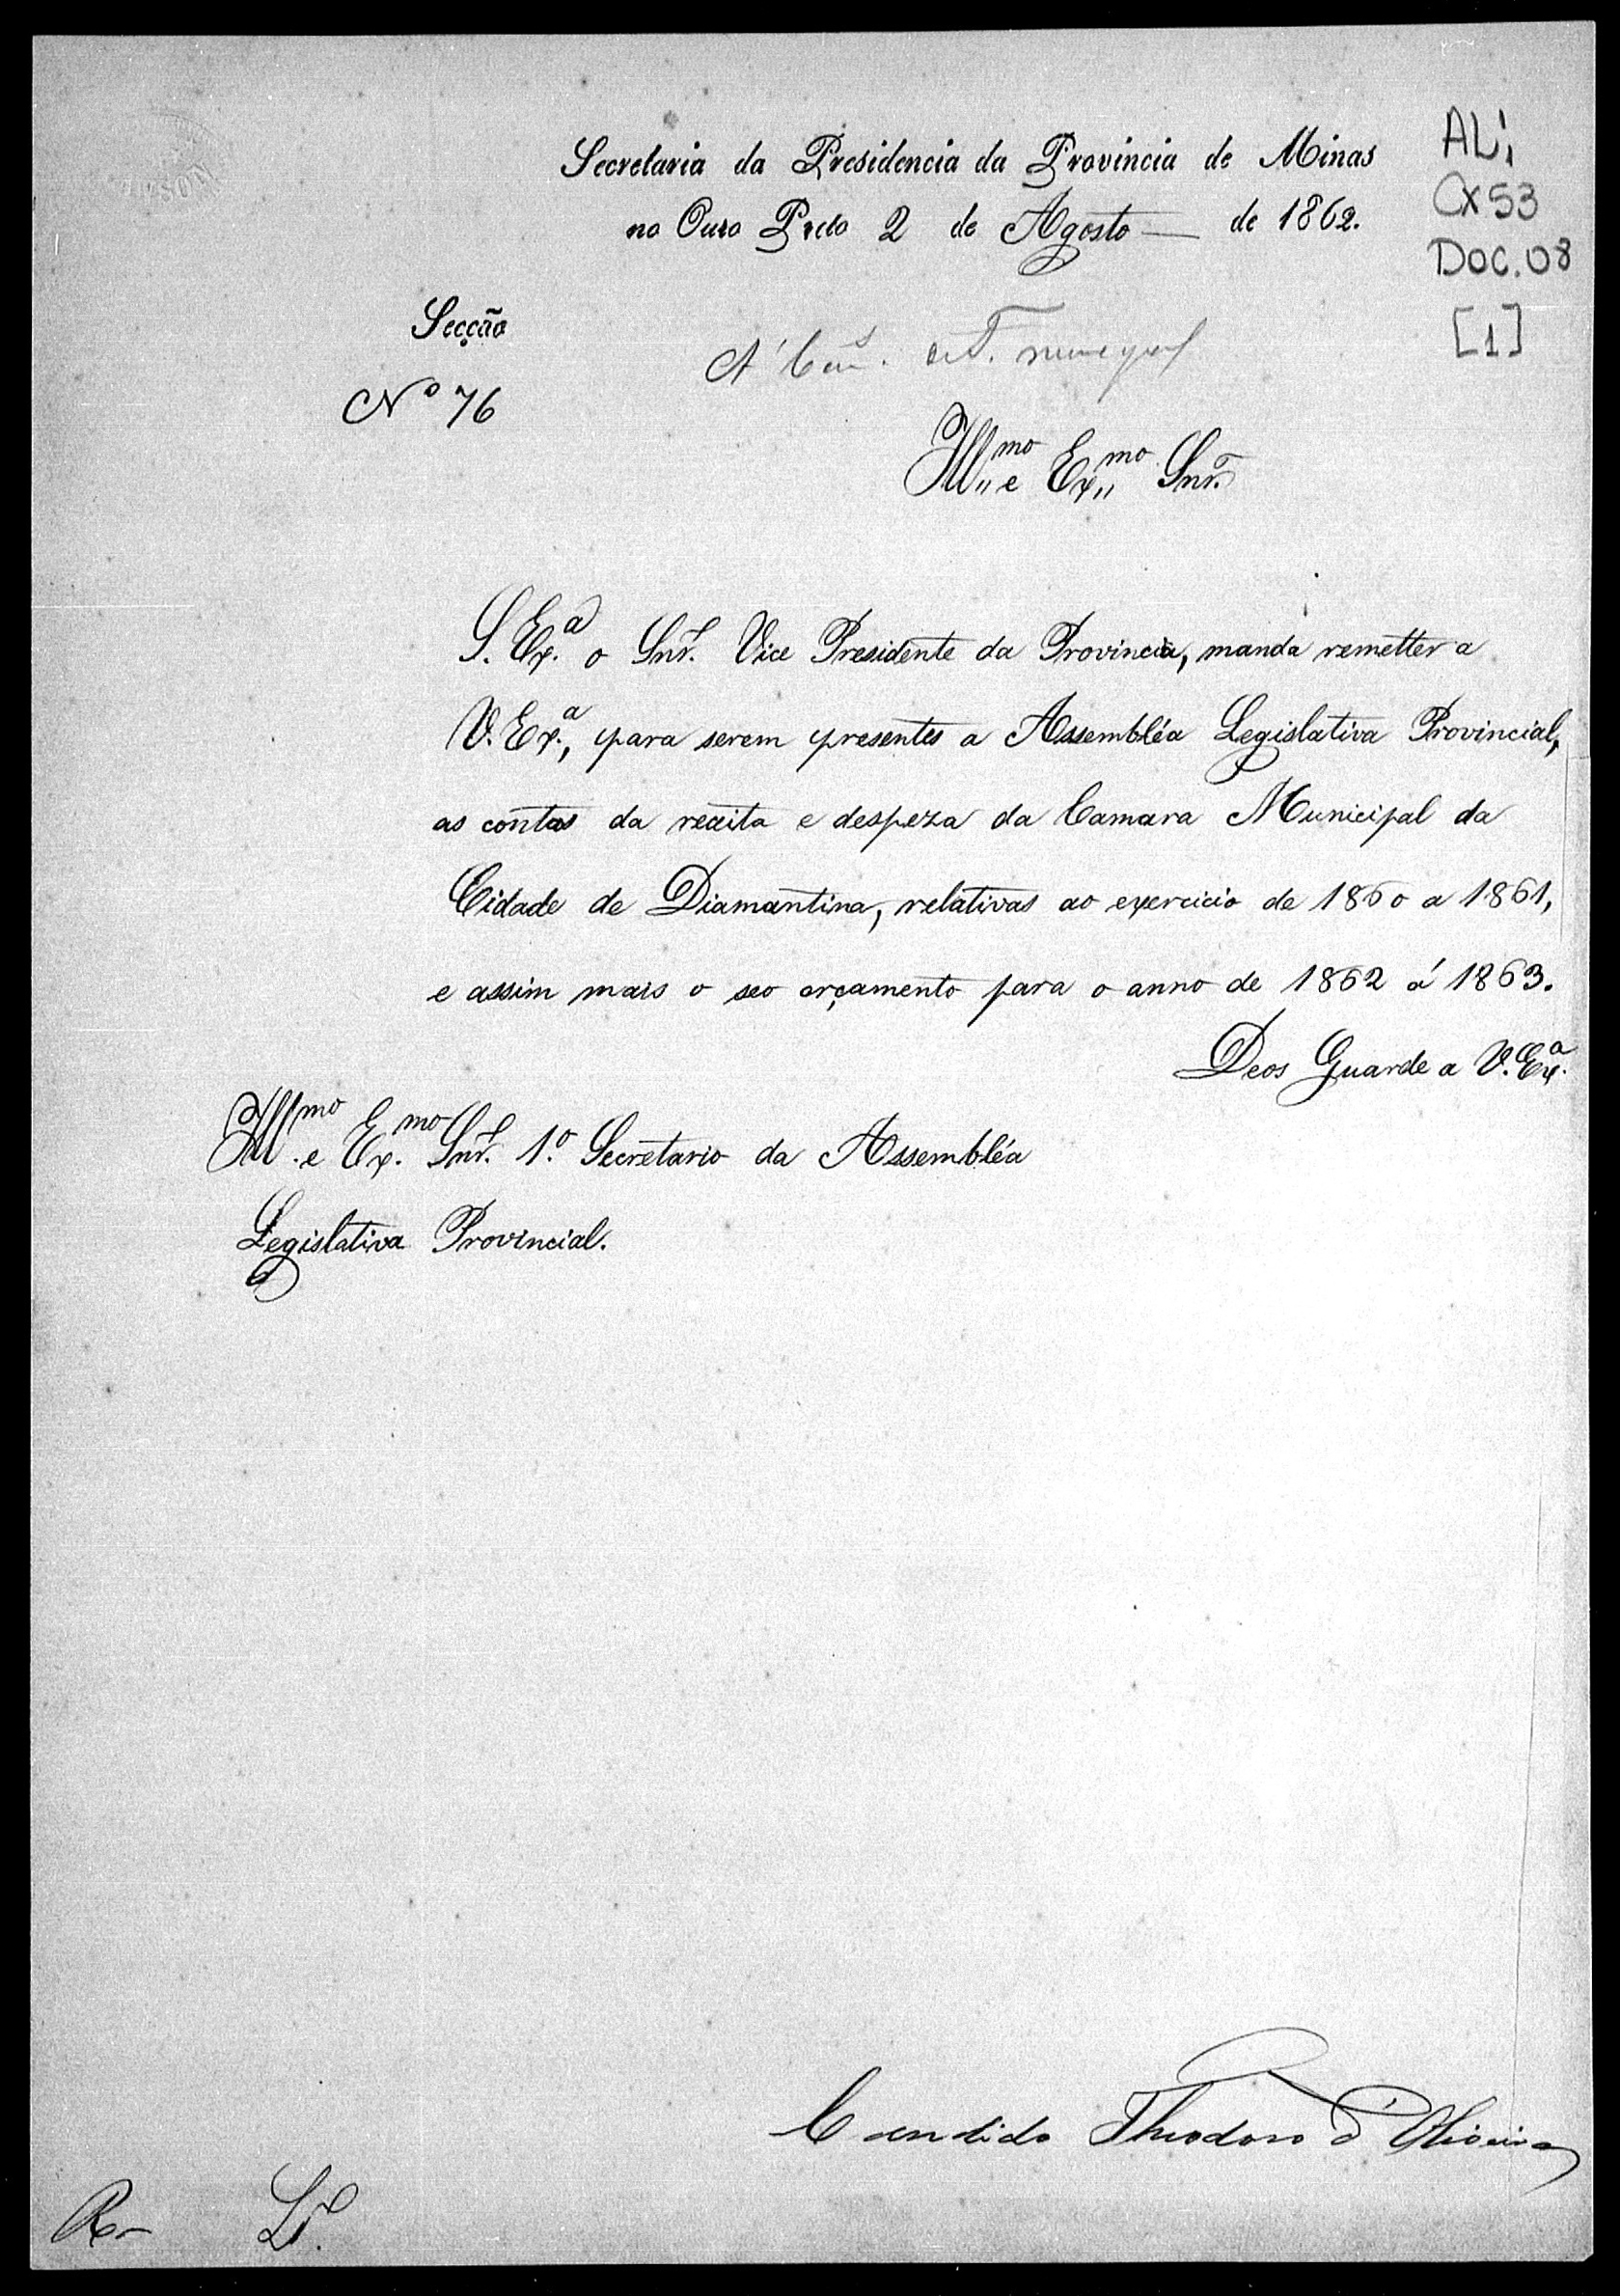 AL1
CX 53
DOC. 08
[1]
Secretaria da Presidencia da Provincia de Minas
no Ouro Preto 2 de Agosto — de 1862.
Secção
Nº 76
Á
Ill.mo e Ex.mo Snr.
S. Ex.a o Snr. Vice Presidente da Provincia, manda remetter a
V. Ex.a, para serem presentes a Assembléa Legislativa Provincial,
as contas da receita e despeza da Camara Municipal da
Cidade de Diamantina, relativas ao exercicio de 1860 a 1861,
e assim mais o seo orçamento para o anno de 1862 á 1863.
Deos Guarde a V. Ex.a
Ill.mo e Ex.mo Snr. 1.º Secretario da Assembléa
Legislativa Provincial.
Candido Theodoro d'Oliveira